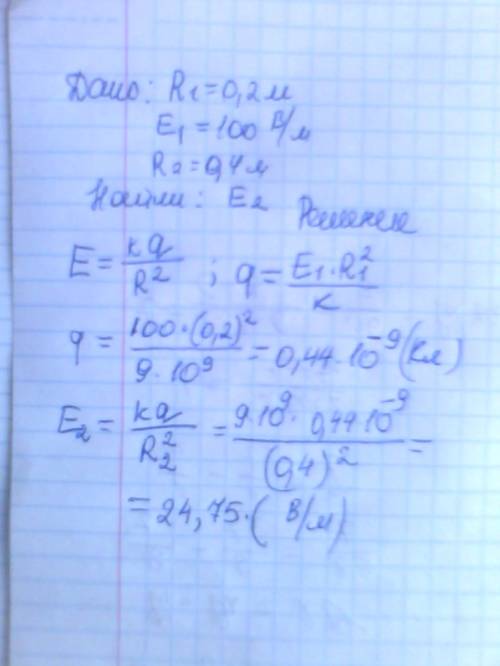 Дано: R₁ = 0,2 м
E₁ = 100 В/м
R₂ = 0,4 м
Найти: E₂
Решение
E = kq/R² ; q = E₁·R₁²/k
q = 100·(0,2)²/9·10⁹ = 0,44·10⁻⁹ (Кл)
E₂ = kq/R₂² = 9·10⁹·0,44·10⁻⁹/(0,4)² =
= 24,75·( В/м)